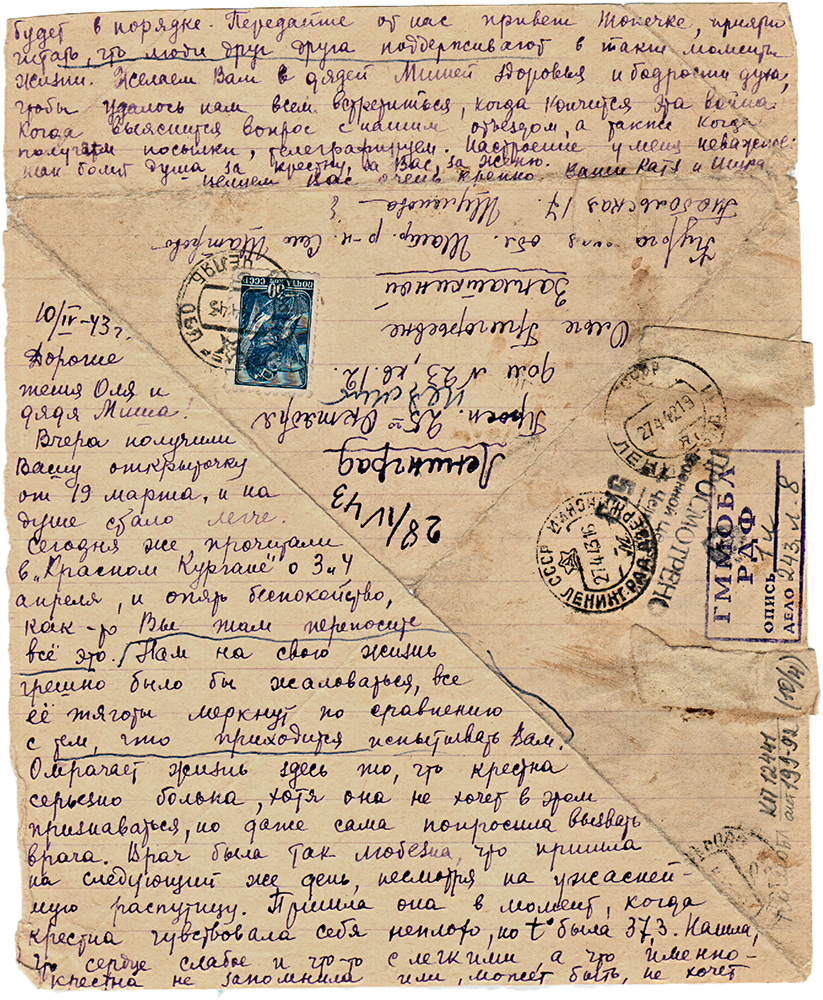 будет в порядке. Передайте от нас привет Тонечке, приятно
читать, что люди друг друга поддерживают в такие моменты
жизни. Желаем Вам с дядей Мишей здоровья и бодрости духа,
чтобы удалось нам всем встретиться, когда кончится эта война.
Когда выяснится вопрос с нашим отъездом, а также когда
получите посылки, телеграфируем. Настроение у меня неважное:
так болит душа за крестну, за Вас, за Женю.
Целуем Вас очень крепко. Ваши Катя и Шура
10/IV-43 г.
Дорогие
тетя Оля и
дядя Миша!
Вчера получили
Вашу открыточку
от 19 марта, и на
душе стало легче.
Сегодня же прочитали
в „Красном Кургане" о 3 и 4
апреля, и опять беспокойство,
как-то Вы там переносите
всё это. Нам на свою жизнь
грешно было бы жаловаться, все
её тяготы меркнут по сравнению
с тем, что приходится испытывать Вам.
Омрачает жизнь здесь то, что крестна
серьезно больна, хотя она не хочет в этом
признаваться, но даже сама попросила вызвать
врача. Врач была так любезна, что пришла
на следующий же день, несмотря на ужасней-
шую распутицу. Пришла она в момент, когда
крестна чувствовала себя неплохо, но t° была 37,3. Нашла,
что сердце слабое и что-то с легкими, а что именно-
крестна не запомнила или, может быть, не хочет
28/IV 43
Ленинград
Просп. 25го Октября
дом № 23, кв. 12.
Ольге Григорьевне
обл. Шатр. р-н. Село Шатрово
Тобольская 17.
ПОЧТА СССР
ЧЕЛЯБ
СССР
ЛЕН
27 4 42 19
СССР
ЛЕНИНГРАД
27.4.43.16
ПРОСМОТРЕНО
Военной Цензурой
ГММОБЛ
РДФ
ОПИСЬ 1к
ДЕЛО 243 л. 8
КП 12441
(10/4)